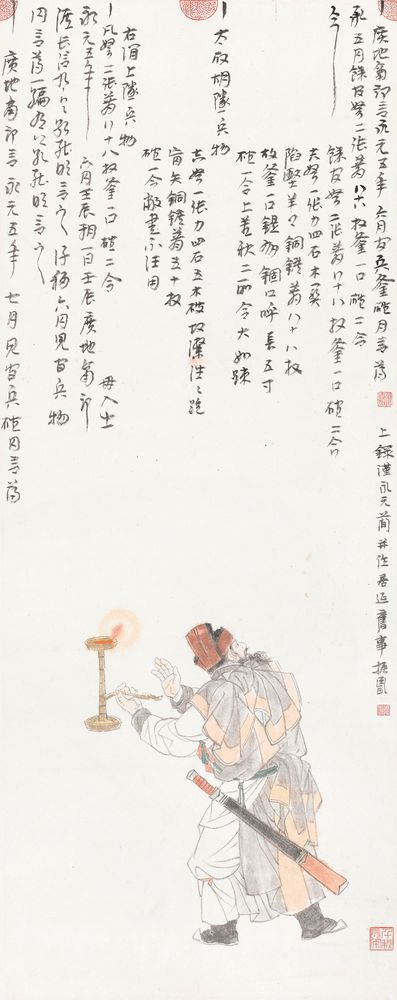 廣地南部言永元五年六月官兵釜磑月言簿
承五月餘官弩二張箭八十八枚釜一口磑二合
今
餘官弩二張箭八十八枚釜一口磑二合
赤弩一張力四石木關
陷堅羊頭銅鍭箭八十八枚
故釜一口鍉有錮口呼長五寸
磑一合上蓋缺二所各大如疎
右破胡隧兵物
赤弩一張力四石五木破故繫往往絕
盲矢銅鍭箭五十枚
磑一合敝盡不任用
右澗上隧兵物
凡弩二張箭八十八枚釜一口磑二合 毋入出
永元五年六月壬辰朔一日壬辰廣地南部
候長信叩頭死罪敢言之謹移六月見官兵物
月言簿編叩頭死罪敢言之
廣地南部言永元五年七月見官兵磑月言簿
上錄漢永元簡并作居延舊事 振國